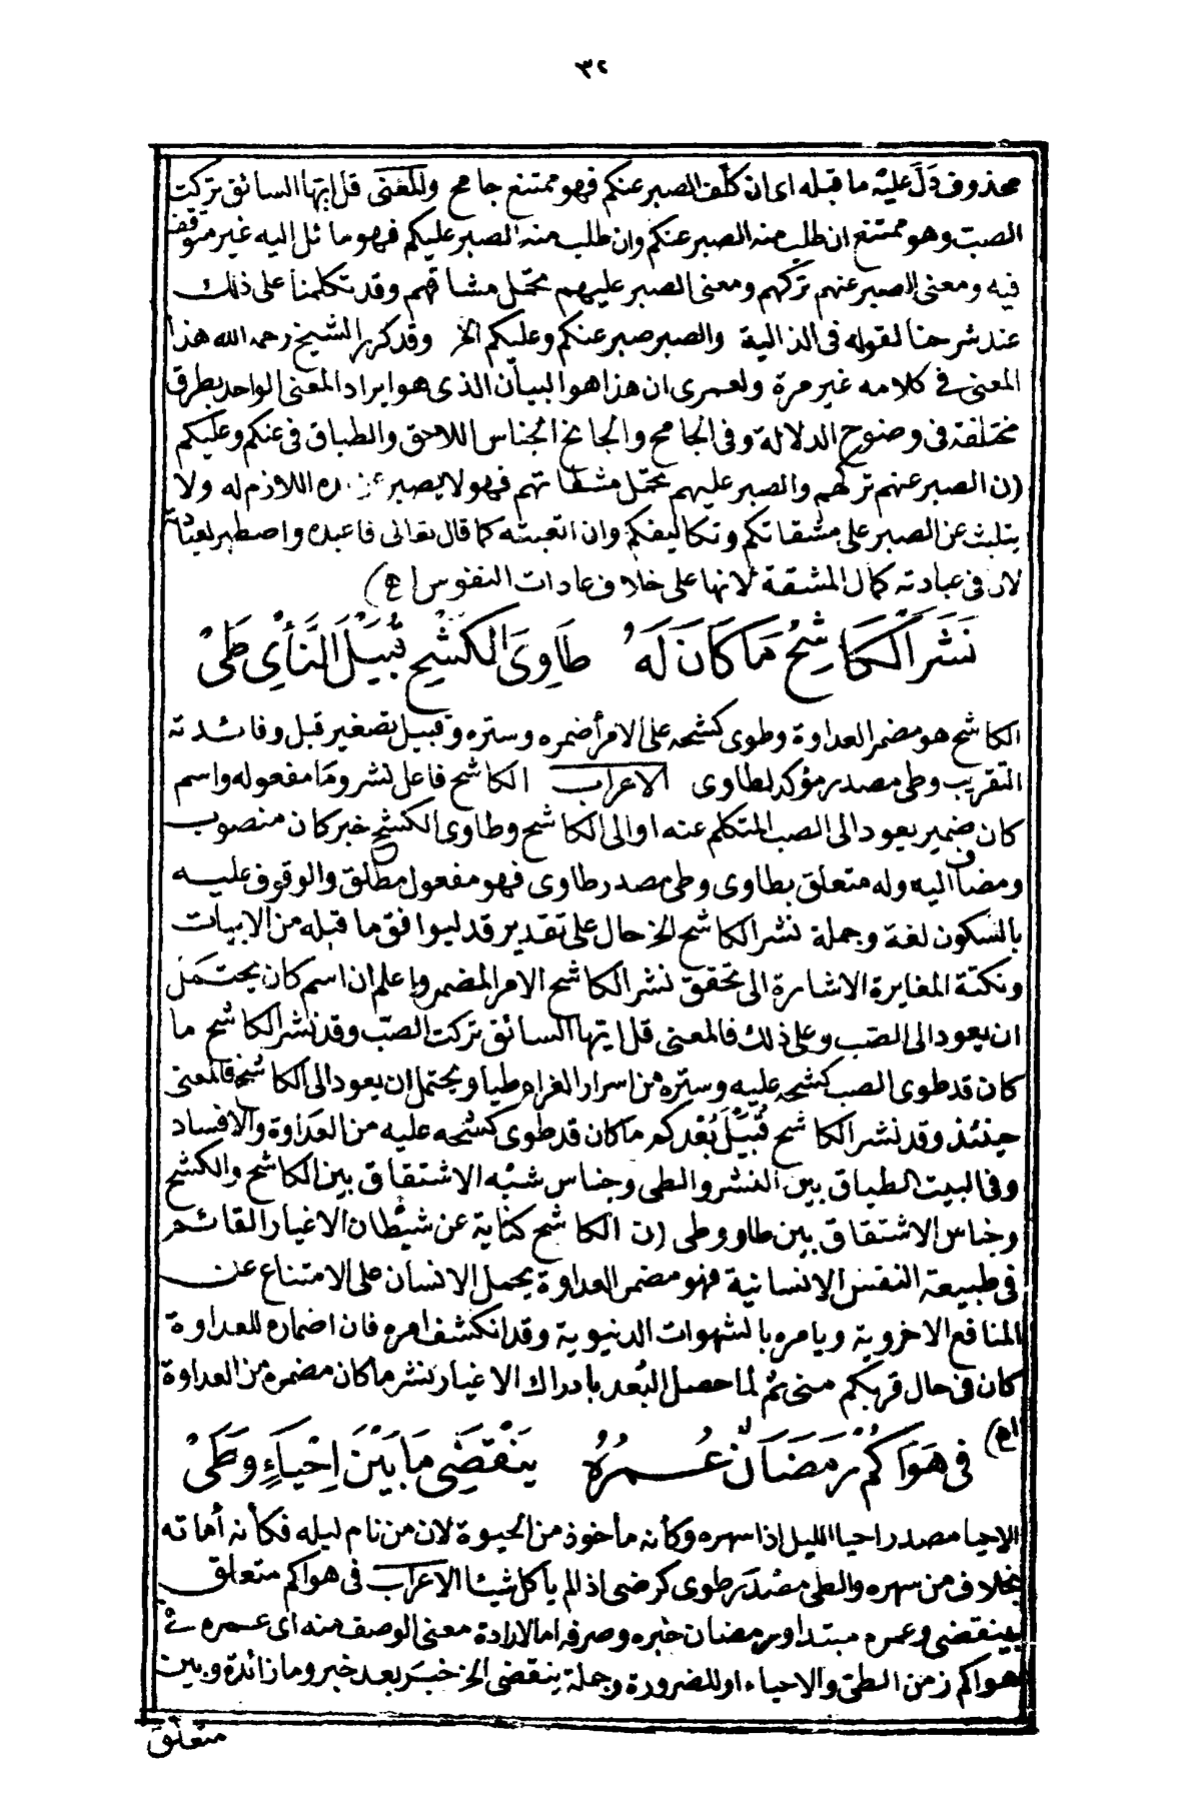 ٣٢
محذوف دَلَّ عليه ما قبله اى ان كلّف الصبر عنكم فهو ممتنع جامح والمعنى قل ايها السائق تركت
الصب وهو ممتنع ان طلب منه الصبر عنكم وان طلب منه الصبر عليكم فهو مائل اليه غير متوقف
فيه ومعنى الصبر عنهم تركهم ومعنى الصبر عليهم تحمّل مشاقهم وقد تكلمنا على ذلك
عند شرحنا لقوله فى الذالية والصبر صبر عنكم وعليكم الخ وقد كرر الشيخ رحمه الله هذا
المعنى فى كلامه غير مرة ولعمرى ان هذا هو البيان الذى هو ايراد المعنى الواحد بطرق
مختلفة فى وضوح الدلالة وفى الجامح والجانح الجناس اللاحق والطباق فى عنكم وعليكم
(ن الصبر عنهم تركهم والصبر عليهم تحمّل مشقاتهم فهو لا يصبر عن اللازم له ولا
يتلبث عن الصبر على مشقاتكم وتكاليفكم وان اتعبته كما قال تعالى فاعبده واصطبر لعبادته
لان فى عبادته كمال المشقة لانها على خلاف عادات النفوس اھ)
نَشَرَ الْكَاشِحُ مَا كَانَ لَهُ طَاوِىَ الكَشْحِ قُبَيْلَ النَّأْىِ طَىْ
الكاشح هو مضمر العداوة وطوى كشحه على الامر أضمره وستره وقبيل تصغير قبل وفائدته
التقريب وطى مصدر مؤكد لطاوى الاعراب الكاشح فاعل نشر وما مفعوله واسم
كان ضمير يعود الى الصب المتكلم عنه او الى الكاشح وطاوى الكشح خبر كان منصوب
ومضاف اليه وله متعلق بطاوى وطى مصدر طاوى فهو مفعول مطلق والوقوف عليه
بالسكون لغة وجملة نشر الكاشح الخ حال على تقدير قد ليوافق ما قبله من الابيات
ونكتة المغايرة الاشارة الى تحقق نشر الكاشح الامر المضمر واعلم ان اسم كان يحتمل
ان يعود الى الصب وعلى ذلك فالمعنى قل ايها السائق تركت الصب وقد نشر الكاشح ما
كان قد طوى الصب كشحه عليه وستره من اسرار الغرام طيا ويحتمل ان يعود الى الكاشح فالمعنى
حينئذ وقد نشر الكاشح قُبَيْلَ بُعْدكم ما كان قد طوى كشحه عليه من العداوة والافساد
وفى البيت الطباق بين النشر والطى وجناس شبه الاشتقاق بين الكاشح والكشح
وجناس الاشتقاق بين طاو وطى (ن الكاشح كناية عن شيطان الاغيار القائم
فى طبيعة النفس الانسانية فهو مضمر العداوة يحمل الانسان على الامتناع عن
المنافع الاخروية ويامره بالشهوات الدنيوية وقد انكشف امره فان اضماره للعداوة
كان فى حال قربكم منى ثم لما حصل البُعد بادراك الاغيار نشر ما كان مضمره من العداوة
اھ) فى هَوَاكُمْ رَمَضَانٌ عُمْرُهُ يَنْقَضِى مَا بَيْنَ اِحْيَاءٍ وَطَىْ
الاحيا مصدر احيا الليل اذا سهره وكأنه مأخوذ من الحيوة لان من نام ليله فكأنه أماته
بخلاف من سهره والطى مصدر طوى كرضى اذ لم يأكل شيئا الاعراب فى هواكم متعلق
بينقضى وعمره مبتدا ورمضان خبره وصرفه اما لارادة معنى الوصف منه اى عمره فى
هواكم زمن الطى والاحياء او للضرورة وجملة ينقضى الخ خبر بعد خبر وما زائدة وبين
متعلق